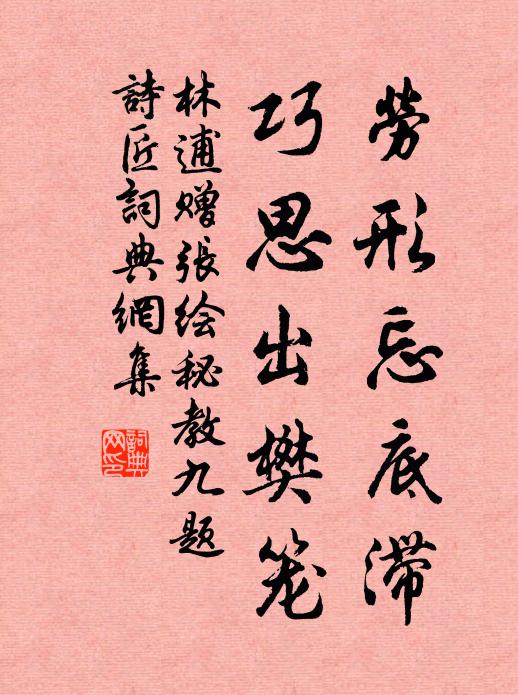 劳形忘底滞
巧思出樊笼
林逋赠张绘秘教九题
詩匠詞典網集
詞典
网印